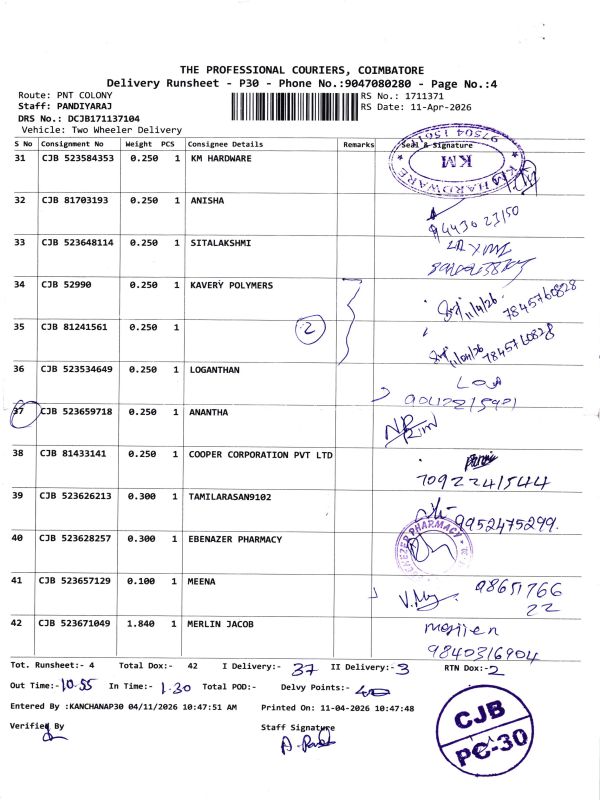 THE PROFESSIONAL COURIERS, COIMBATORE
Delivery Runsheet - P30 - Phone No.:9047080280 - Page No.:4
Route: PNT COLONY
RS No.: 1711371
Staff: PANDIYARAJ
RS Date: 11-Apr-2026
DRS No.: DCJB171137104
Vehicle: Two Wheeler Delivery
S No Consignment No Weight PCS Consignee Details Remarks Seal & Signature
31 CJB 523584353 0.250 1 KM HARDWARE
KM HARDWARE
KM
32 CJB 81703193 0.250 1 ANISHA
33 CJB 523648114 0.250 1 SITALAKSHMI
34 CJB 52990 0.250 1 KAVERY POLYMERS
11/4/26 7845760828
35 CJB 81241561 0.250 1
2
11/04/26
36 CJB 523534649 0.250 1 LOGANTHAN
37 CJB 523659718 0.250 1 ANANTHA
38 CJB 81433141 0.250 1 COOPER CORPORATION PVT LTD
7092241544
39 CJB 523626213 0.300 1 TAMILARASAN9102
9952475299.
40 CJB 523628257 0.300 1 EBENAZER PHARMACY
PHARMACY
41 CJB 523657129 0.100 1 MEENA
98651766
22
42 CJB 523671049 1.840 1 MERLIN JACOB
9840316904
Tot. Runsheet:- 4 Total Dox:- 42 I Delivery:- 37 II Delivery:- 3 RTN Dox:- 2
Out Time:- 10.55 In Time:- 1.30 Total POD:- Delvy Points:-
Entered By :KANCHANAP30 04/11/2026 10:47:51 AM Printed On: 11-04-2026 10:47:48
Verified By Staff Signature
CJB
PC-30